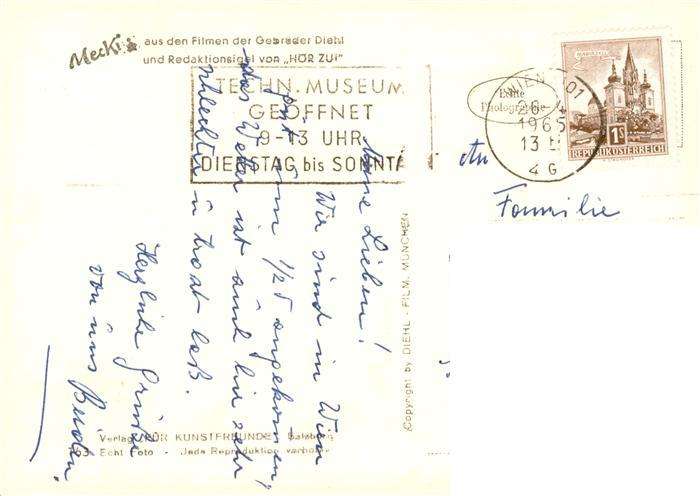 Mecki aus den Filmen der Gebrüder Diehl
und Redaktionsigel von „HÖR ZU!“
TECHN. MUSEUM
GEÖFFNET
9-13 UHR
DIENSTAG bis SONNTA
WIEN 101
26. 4
1965
13
4 G
Echte
Photographie
MARIAZELL
1S
REPUBLIK ÖSTERREICH
An
Familie
Meine Lieben!
Wir sind in Wien
gut um 1/2 5 angekommen,
das Wetter ist auch hie sehr
schlecht
Herzliche Grüße
von uns Beiden.
Copyright by DIEHL - FILM, MÜNCHEN
Verlag FÜR KUNSTFREUNDE Salzburg
Echt Foto - Jede Reproduktion verboten